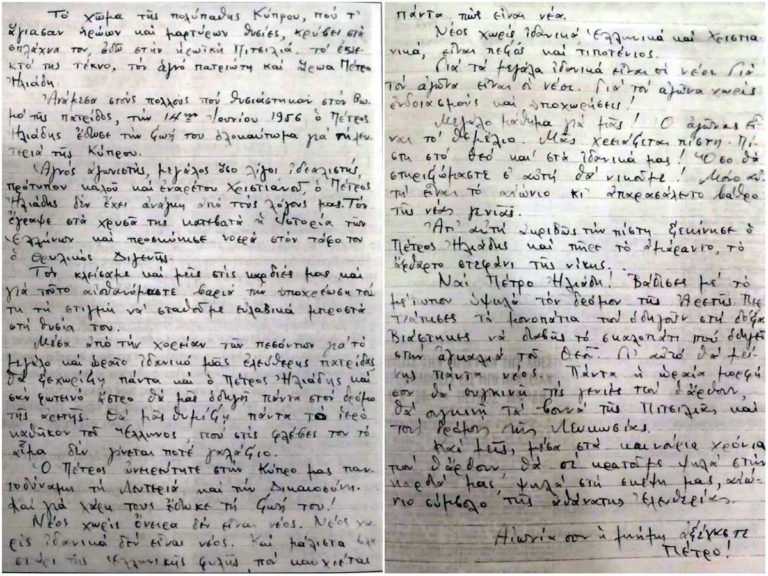 Τὸ χῶμα τῆς πολύπαθης Κύπρου, πού τ'
ἅγιασαν ἡρώων καὶ μαρτύρων θυσίες, κρύβει στὰ
σπλάχνα του, ἐδῶ στὴν ἡρωϊκὴ Πιτσιλιά, τὸ ἐκλε-
κτό της τέκνο, τὸν ἁγνὸ πατριώτη καὶ ἥρωα Πέτρο
Ἠλιάδη.
Ἀνάμεσα στοὺς πολλοὺς ποὺ θυσιάστηκαν στὸν βω-
μὸ τῆς πατρίδος, τὴν 14ην Ἰουνίου 1956 ὁ Πέτρος
Ἠλιάδης ἔδωσε τὴν ζωή του ὁλοκαύτωμα γιὰ τὴ λευ-
τεριὰ τῆς Κύπρου.
Ἁγνὸς ἀγωνιστής, μεγάλος ὅσο λίγοι ἰδεαλιστής,
πρότυπον καλοῦ καὶ ἐναρέτου Χριστιανοῦ, ὁ Πέτρος
Ἠλιάδης δὲν ἔχει ἀνάγκη ἀπὸ τοὺς λόγους μας. Τὸν
ἔγραψε στὰ χρυσᾶ της κατεβατὰ ἡ Ἱστορία τῶν
Ἑλλήνων καὶ προσκύνησε νοερὰ στὸν τάφο του
ὁ θρυλικὸς Διγενής.
Τὸν κλείσαμε καὶ μεῖς στὶς καρδιές μας καὶ
γιὰ τοῦτο αἰσθανόμαστε βαριὰ τὴν ὑποχρέωση τού-
τη τὴ στιγμὴ νὰ σταθοῦμε εὐλαβικὰ μπροστὰ
στὴ θυσία του.
Μέσα ἀπὸ τὴν χορείαν τῶν πεσόντων γιὰ τὸ
μεγάλο καὶ ὡραῖο ἰδανικὸ μιᾶς ἐλεύθερης πατρίδας
θὰ ξεχωρίζη πάντα καὶ ὁ Πέτρος Ἠλιάδης καὶ
σὰν φωτεινὸ ἄστρο θὰ μᾶς ὁδηγῆ πάντα στὸν δρόμο
τῆς ἀρετῆς. Θὰ μᾶς θυμίζη πάντα τὸ ἱερὸ
καθῆκον τοῦ Ἕλληνος ποὺ στὶς φλέβες του τὸ
αἷμα δὲν γίνεται ποτὲ γαλάζιο.
Ὁ Πέτρος ὀνειρεύτηκε στὴν Κύπρο μας παν-
τοδύναμη τὴ Λευτεριὰ καὶ τὴν Δικαιοσύνη.
Καὶ γιὰ χάρη τους ἔδωκε τὴ ζωή του!
Νέος χωρὶς ὄνειρα δὲν εἶναι νέος. Νέος χω-
ρὶς ἰδανικὰ δὲν εἶναι νέος. Καὶ μάλιστα
τῆς Ἑλληνικῆς φυλῆς, ποὺ καυχιέται
πάντα πὼς εἶναι νέα.
Νέος χωρὶς ἰδανικὰ Ἑλληνικὰ καὶ Χριστια-
νικά, εἶναι πεζὸς καὶ τιποτένιος.
Γιὰ τὰ μεγάλα ἰδανικὰ εἶναι οἱ νέοι. Γιὰ
τὸν ἀγῶνα εἶναι οἱ νέοι. Γιὰ τὸν ἀγῶνα χωρὶς
ἐνδοιασμοὺς καὶ ὑποχωρήσεις!
Μεγάλο μάθημα γιὰ μᾶς! Ὁ ἀγῶνας εἶ-
ναι τὸ θεμέλιο. Μᾶς χρειάζεται πίστη. Πί-
στη στὸ Θεὸ καὶ στὰ ἰδανικά μας! Ὅσο θὰ
στηριζόμαστε σ' αὐτὴ θὰ νικοῦμε! Μόνο αὐ-
τὴ εἶναι τὸ αἰώνιο κι' ἀπαρασάλευτο βάθρο
τῆς νέας γενιᾶς.
Ἀπ' αὐτὴ ἀκριβῶς τὴν πίστη ξεκίνησε ὁ
Πέτρος Ἠλιάδης καὶ πῆρε τὸ ἀμάραντο, τὸ
ἄφθαρτο στεφάνι τῆς νίκης.
Ναί, Πέτρο Ἠλιάδη! Βάδισες μὲ τὸ
μέτωπον ὑψηλὰ τὸν δρόμον τῆς Ἀρετῆς. Περ-
πάτησες τὰ μονοπάτια ποὺ ὁδηγοῦν στὴ δόξα.
Βιάστηκες νὰ διαβῆς τὸ σκαλοπάτι ποὺ ὁδηγεῖ
στὴν ἀγκαλιὰ τοῦ Θεοῦ. Γι' αὐτὸ θὰ μεί-
νης πάντα νέος. Πάντα ἡ ὡραία μορφή
σου θὰ συγκινῆ τὶς γενιὲς ποὺ θἄρθουν,
θὰ συγκινῆ τὰ βουνὰ τῆς Πιτσιλιᾶς καὶ
τοὺς δρόμους τῆς Λευκωσίας.
Καὶ μεῖς, μέσα στὰ καινούρια χρόνια
ποὺ θἄρθουν, θὰ σὲ κρατοῦμε ψηλὰ στὴν
καρδιά μας, ψηλὰ στὴ σκέψη μας, αἰώ-
νιο σύμβολο τῆς ἀθάνατης Ἐλευθερίας.
Αἰωνία σου ἡ μνήμη ἀξέχαστε
Πέτρο!